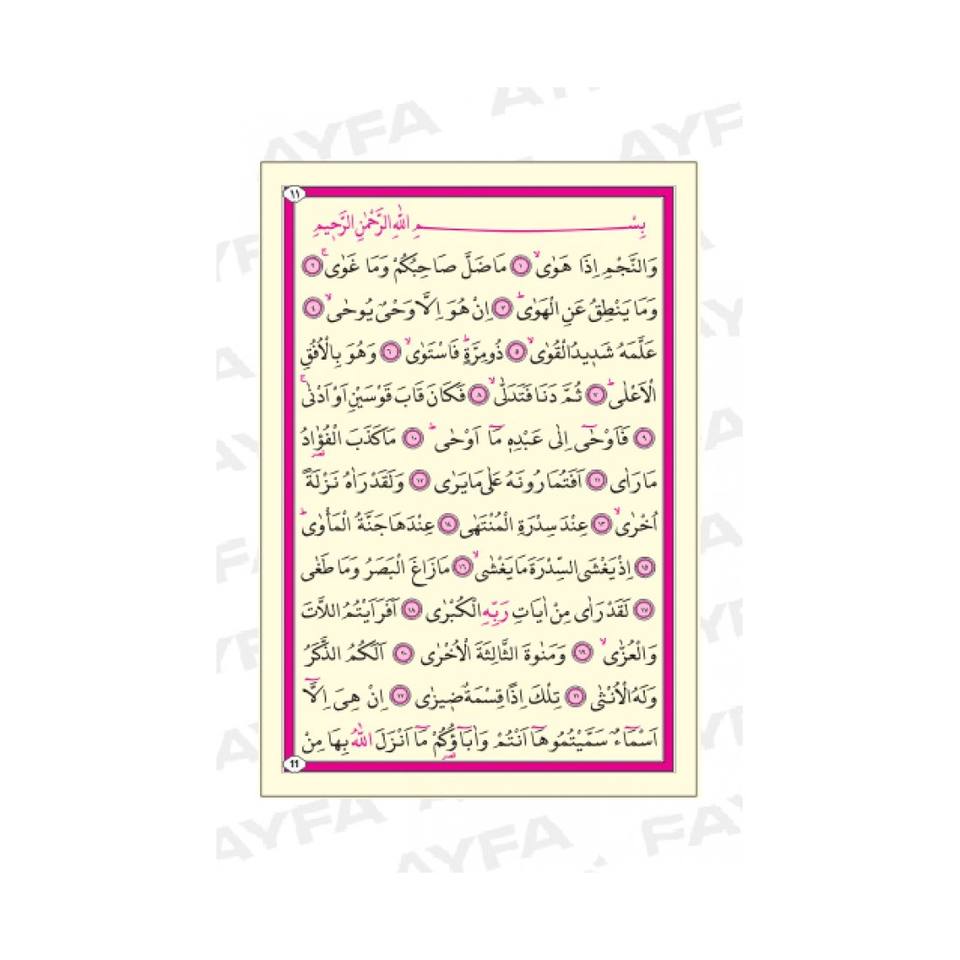 ١١
بِسْمِ اللّٰهِ الرَّحْمٰنِ الرَّحِيمِ
وَالنَّجْمِ اِذَا هَوٰىۙ ﴿١﴾ مَا ضَلَّ صَاحِبُكُمْ وَمَا غَوٰىۚ ﴿٢﴾
وَمَا يَنْطِقُ عَنِ الْهَوٰىۜ ﴿٣﴾ اِنْ هُوَ اِلَّا وَحْىٌ يُوحٰىۙ ﴿٤﴾
عَلَّمَهُ شَدٖيدُ الْقُوٰىۙ ﴿٥﴾ ذُو مِرَّةٍۜ فَاسْتَوٰىۙ ﴿٦﴾ وَهُوَ بِالْاُفُقِ
الْاَعْلٰىۜ ﴿٧﴾ ثُمَّ دَنَا فَتَدَلّٰىۙ ﴿٨﴾ فَكَانَ قَابَ قَوْسَيْنِ اَوْ اَدْنٰىۚ
﴿٩﴾ فَاَوْحٰٓى اِلٰى عَبْدِهٖ مَٓا اَوْحٰىۜ ﴿١٠﴾ مَا كَذَبَ الْفُؤٰادُ
مَا رَاٰى ﴿١١﴾ اَفَتُمَارُونَهُ عَلٰى مَا يَرٰى ﴿١٢﴾ وَلَقَدْ رَاٰهُ نَزْلَةً
اُخْرٰىۙ ﴿١٣﴾ عِنْدَ سِدْرَةِ الْمُنْتَهٰى ﴿١٤﴾ عِنْدَهَا جَنَّةُ الْمَأْوٰىۜ
﴿١٥﴾ اِذْ يَغْشَى السِّدْرَةَ مَا يَغْشٰىۙ ﴿١٦﴾ مَا زَاغَ الْبَصَرُ وَمَا طَغٰى
﴿١٧﴾ لَقَدْ رَاٰى مِنْ اٰيَاتِ رَبِّهِ الْكُبْرٰى ﴿١٨﴾ اَفَرَاَيْتُمُ اللَّاتَ
وَالْعُزّٰىۙ ﴿١٩﴾ وَمَنٰوةَ الثَّالِثَةَ الْاُخْرٰى ﴿٢٠﴾ اَلَكُمُ الذَّكَرُ
وَلَهُ الْاُنْثٰى ﴿٢١﴾ تِلْكَ اِذًا قِسْمَةٌ ضٖيزٰى ﴿٢٢﴾ اِنْ هِىَ اِلَّٓا
اَسْمَٓاءٌ سَمَّيْتُمُوهَٓا اَنْتُمْ وَاٰبَٓاؤُ۬كُمْ مَٓا اَنْزَلَ اللّٰهُ بِهَا مِنْ
11
AYFA